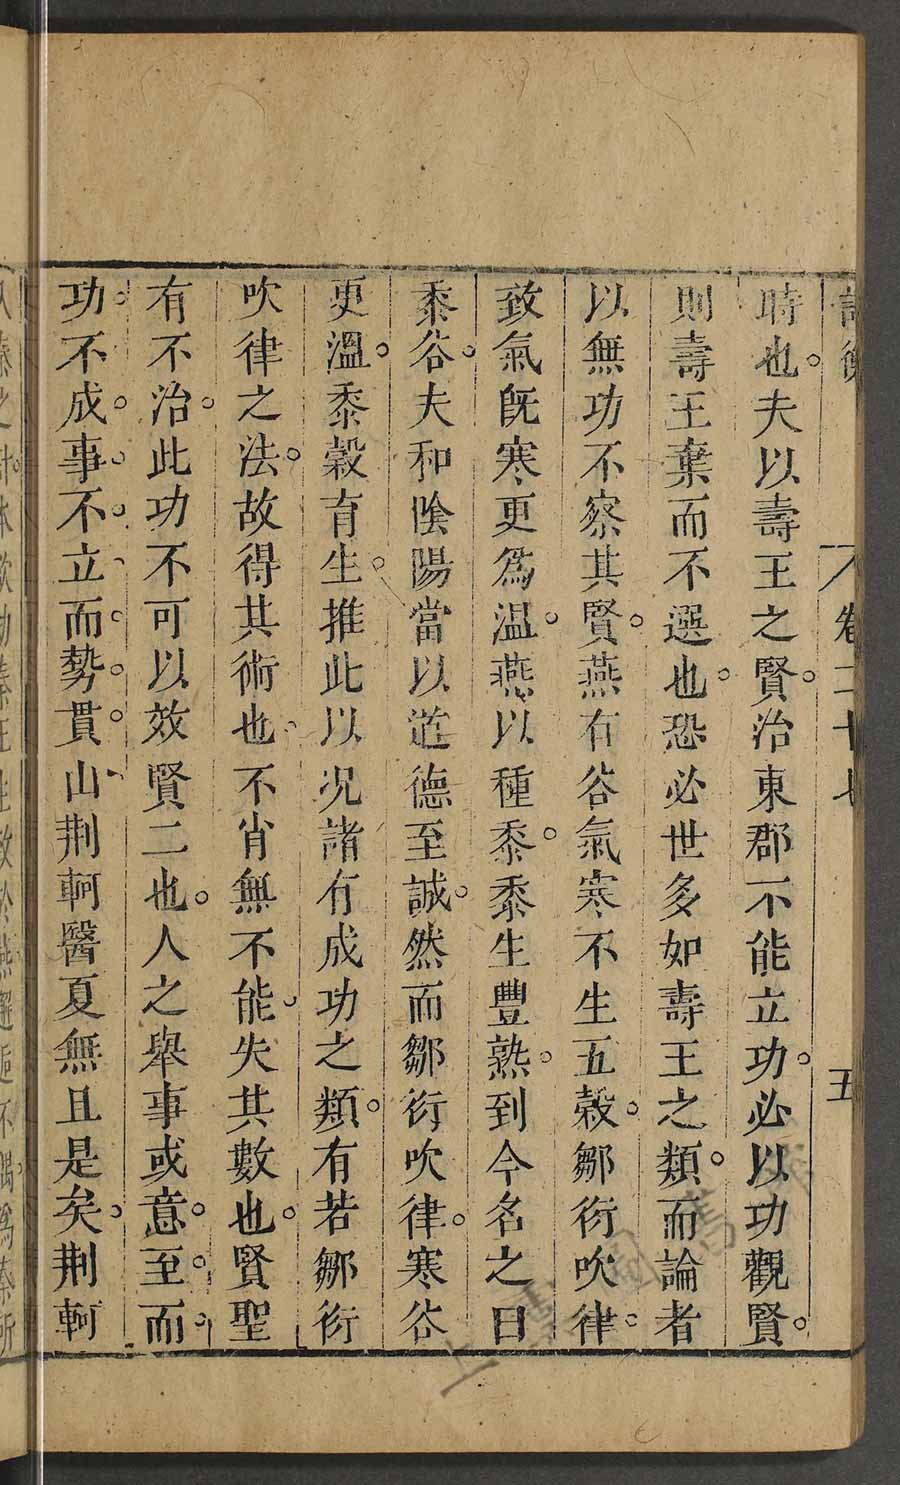 論衡 卷二十七 五
時也夫以壽王之賢治東郡不能立功必以功觀賢
則壽王棄而不選也恐必世多如壽王之類而論者
以無功不察其賢燕有谷氣寒不生五穀鄒衍吹律
致氣旣寒更爲温燕以種黍黍生豐熟到今名之曰
黍谷夫和陰陽當以道德至誠然而鄒衍吹律寒谷
更溫黍穀育生推此以況諸有成功之類有若鄒衍
吹律之法故得其術也不肖無不能失其數也賢聖
有不治此功不可以效賢二也人之舉事或意至而
功不成事不立而勢貫山荆軻醫夏無且是矣荆軻